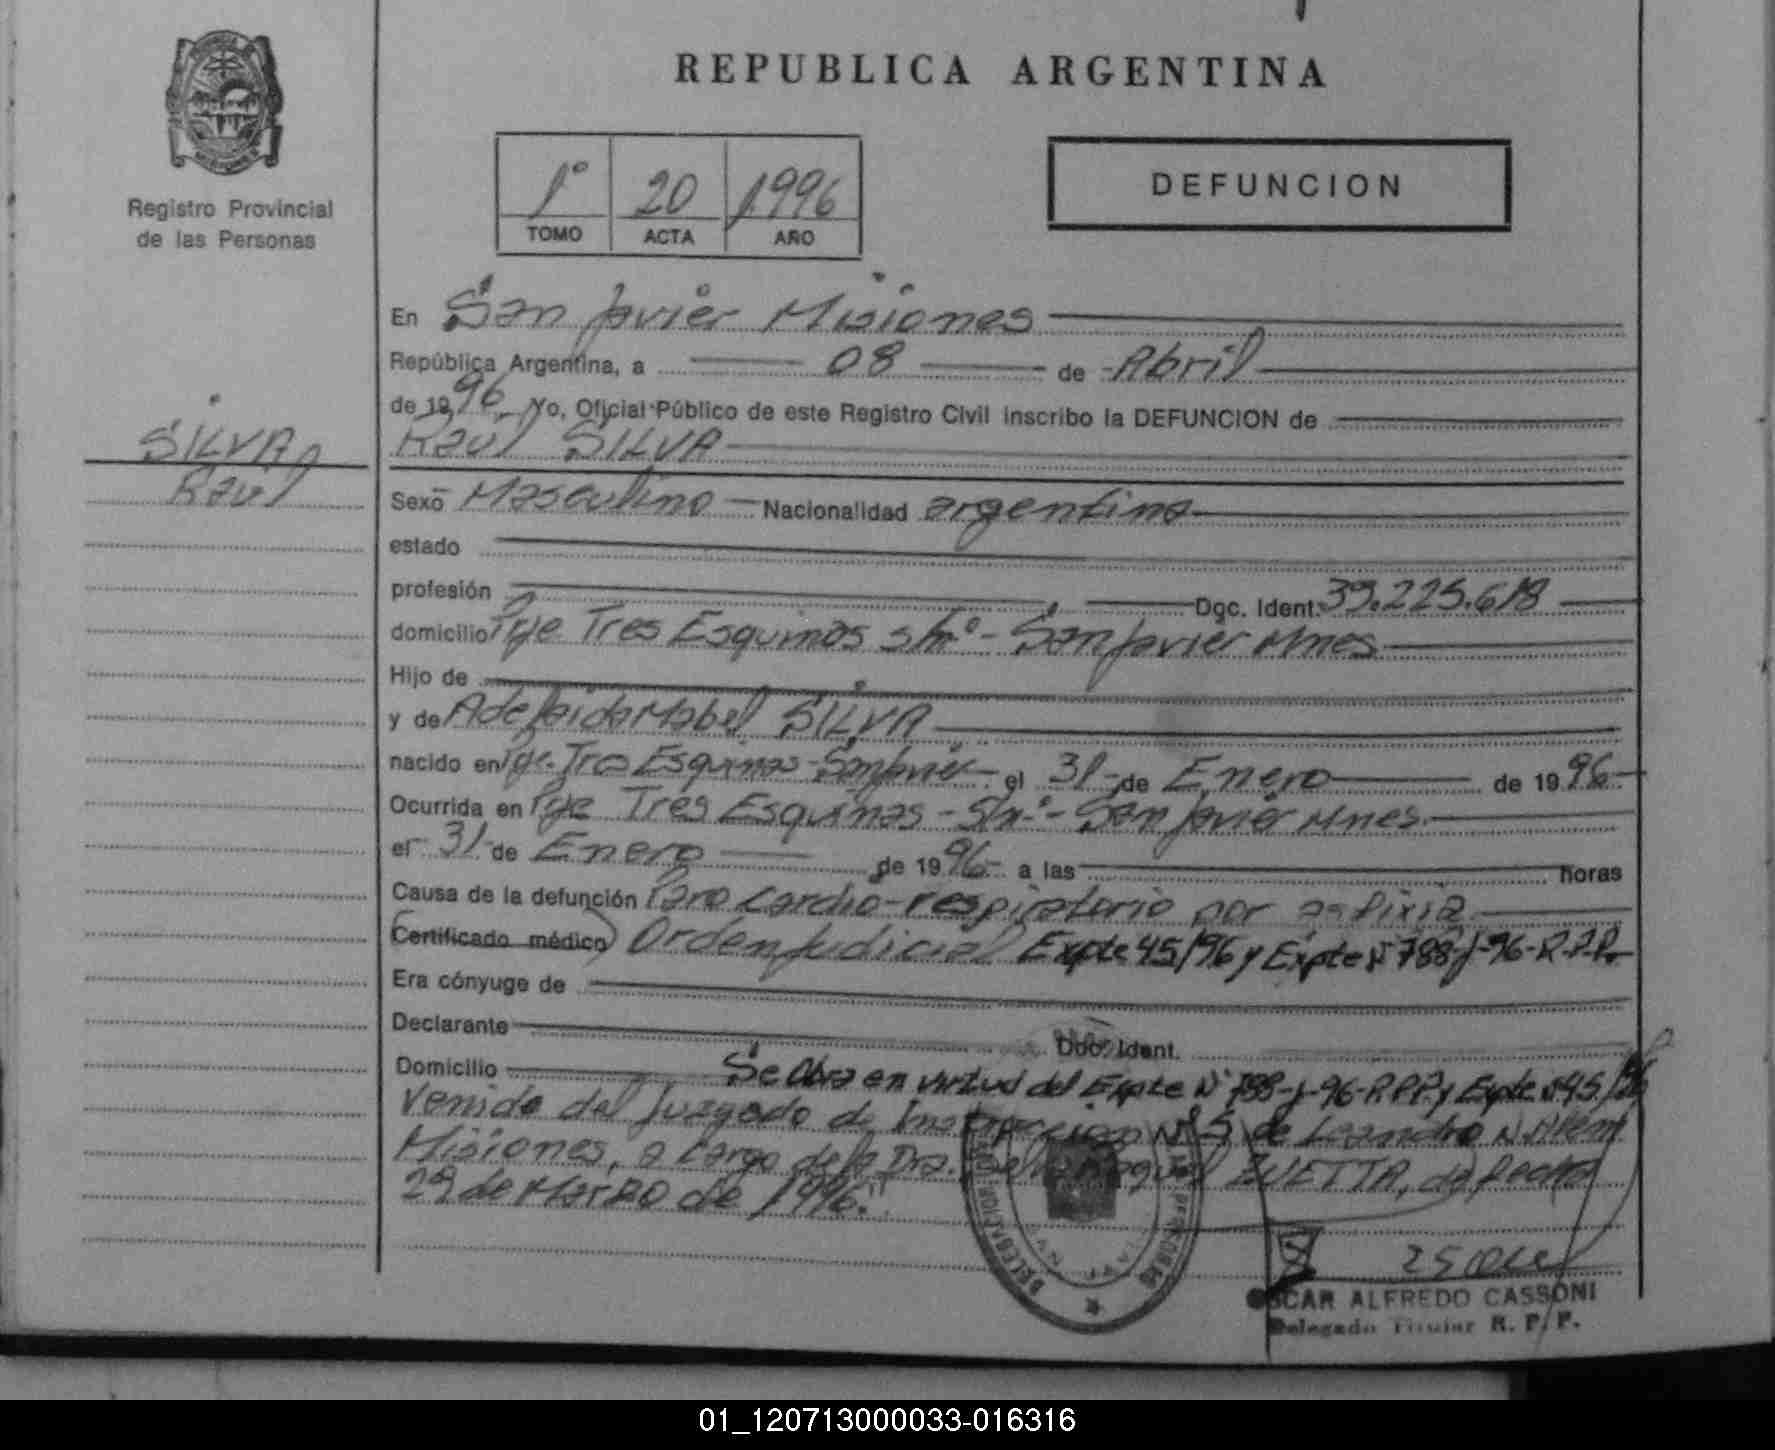 REPUBLICA ARGENTINA
1º 20 1996
TOMO ACTA AÑO
DEFUNCION
Registro Provincial
de las Personas
SILVA
Raul
En San Javier Misiones
República Argentina, a 08 de Abril
de 1996. Yo, Oficial Público de este Registro Civil inscribo la DEFUNCION de
Raul SILVA
Sexo Masculino Nacionalidad argentina
estado
profesión Doc. Ident. 39.225.618
domicilio Pje Tres Esquinas s/nº - San Javier Mnes
Hijo de
y de Adelaida Mabel SILVA
nacido en Pje. Tres Esquinas - San Javier el 31 de Enero de 1996
Ocurrida en Pje Tres Esquinas - S/nº - San Javier Mnes.
el 31 de Enero de 1996 a las horas
Causa de la defunción Paro cardio-respiratorio por asfixia
(Certificado médico) Orden Judicial Expte 45/96 y Expte Nº 788-J-96-R.P.P.
Era cónyuge de
Declarante Doc. Ident.
Domicilio Se labra en virtud del Expte Nº 788-J-96-R.P.P. y Expte. Nº 45/96
Venido del Juzgado de Instrucción Nº 5 de Leandro N. Alem
Misiones, a cargo de la Dra. ZUETTA, de fecha
29 de Marzo de 1996.
DELEGACION
OSCAR ALFREDO CASSONI
Delegado Titular R. P. P.
01_120713000033-016316